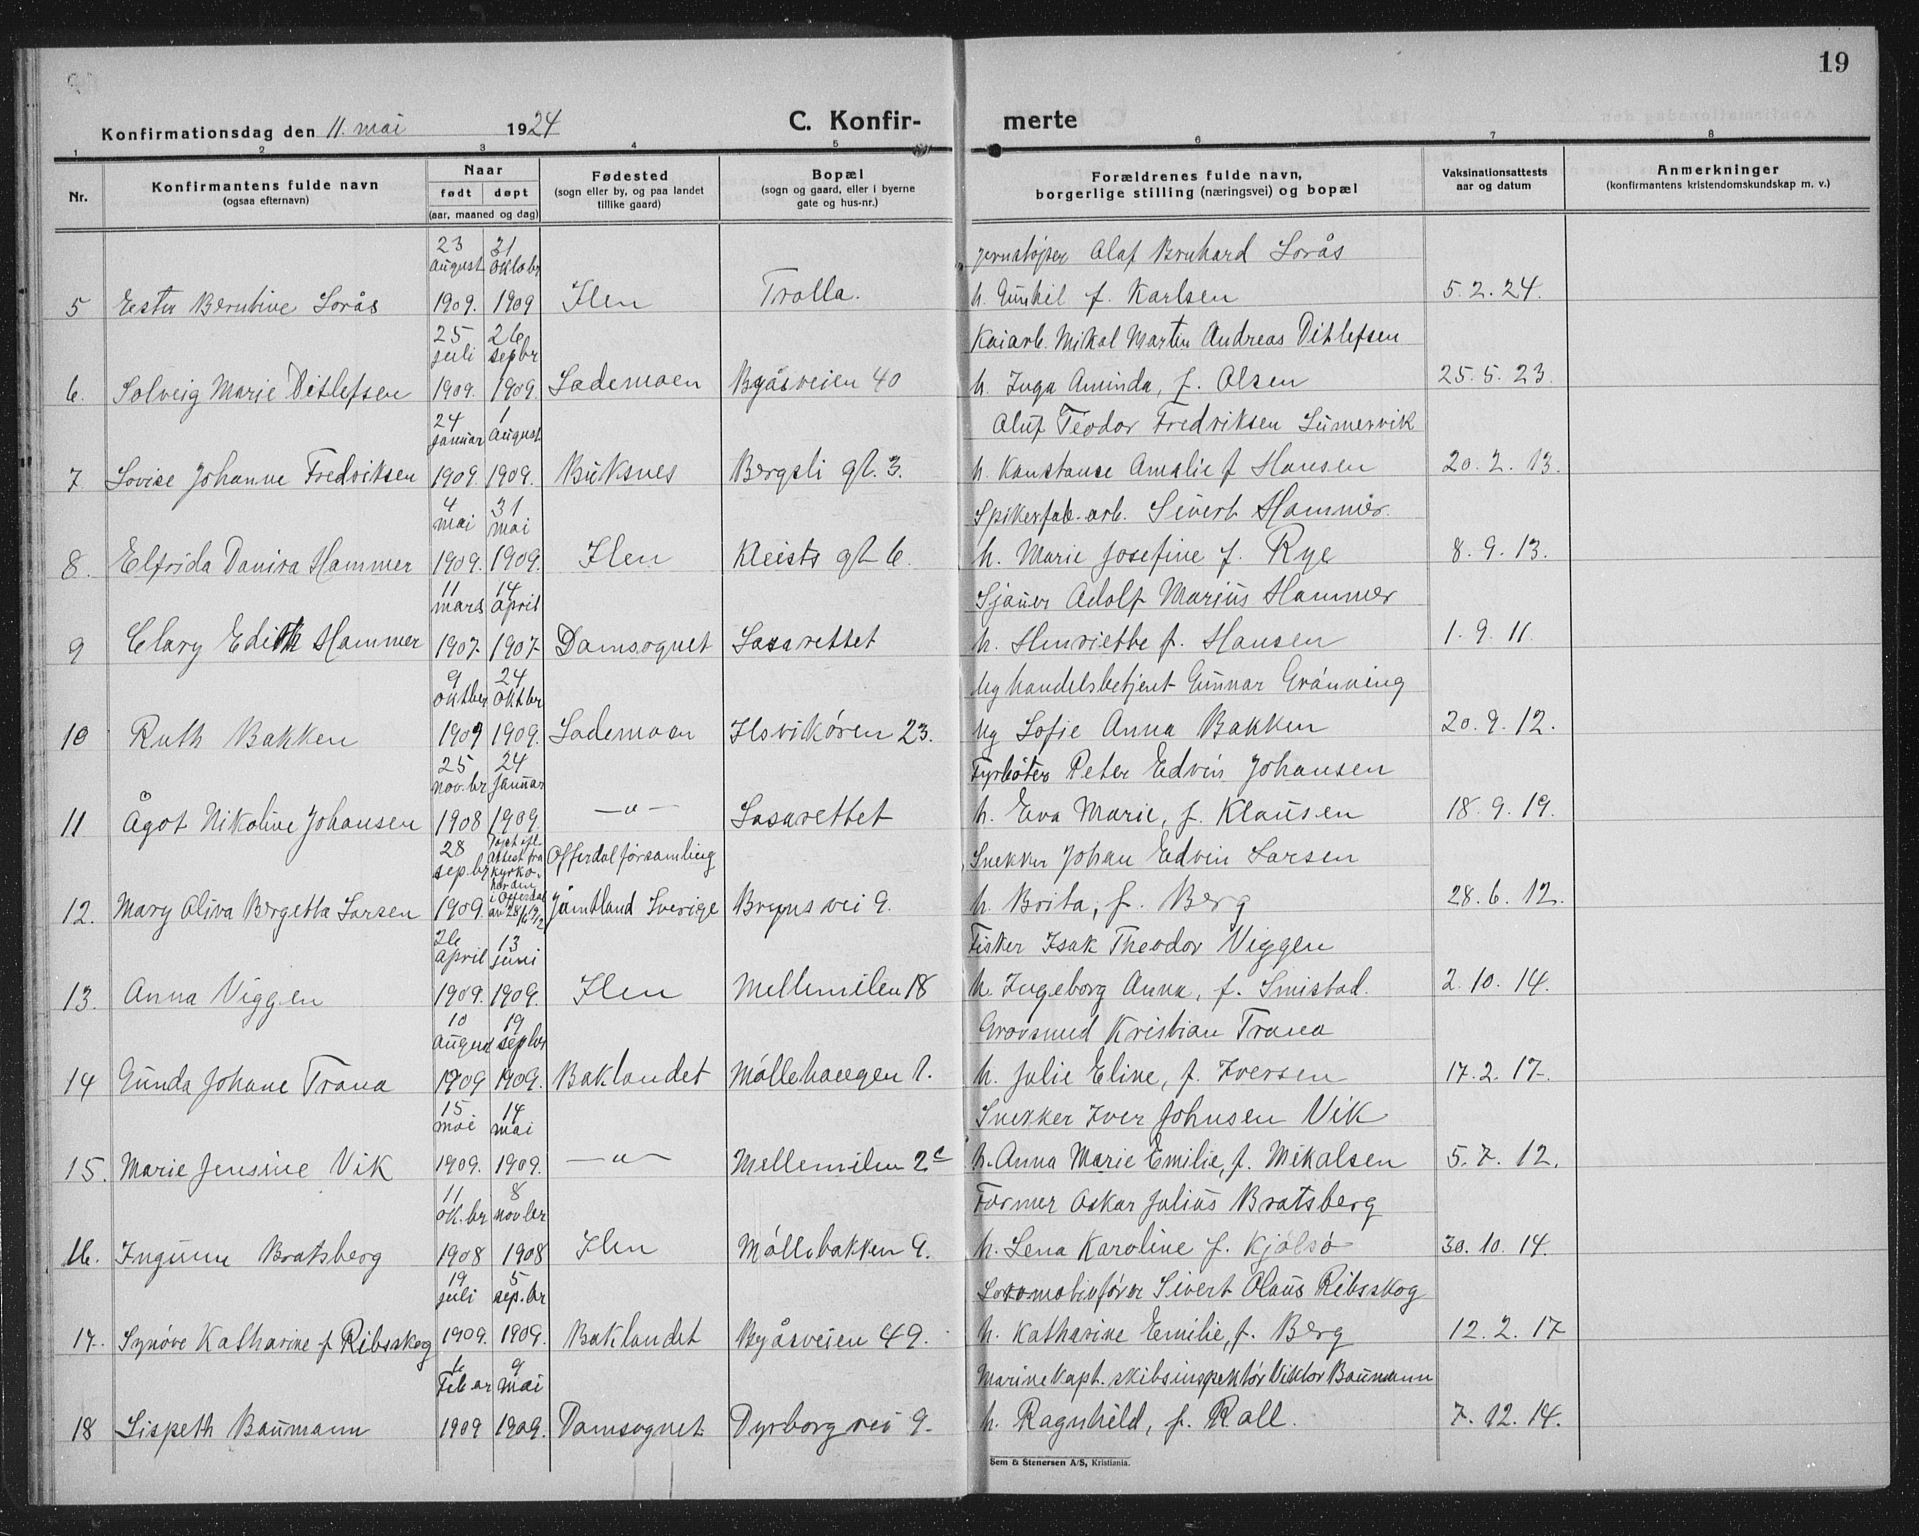 19
Konfirmationsdag den 11. mai 1924
C. Konfirmerte
1 2 3 4 5 6 7 8
Nr.
Konfirmantens fulde navn
(ogsaa efternavn)
Naar
født døpt
(aar, maaned og dag)
Fødested
(sogn eller by, og paa landet
tillike gaard)
Bopæl
(sogn og gaard, eller i byerne
gate og hus-nr.)
Forældrenes fulde navn,
borgerlige stilling (næringsvei) og bopæl
Vaksinationsattests
aar og datum
Anmerkninger
(konfirmantens kristendomskundskap m. v.)
23 august 31 oktobr Olaf Bernhard Lorås
5 Ester Berntine Lorås 1909. 1909 Ilen Trolla. h. Gunhil f. Karlsen 5.2.24.
25 juli 26 sepbr Kaiarb. Mikal Martin Andreas Ditlefsen
6. Solveig Marie Ditlefsen 1909. 1909. Lademoen Byåsveien 40 h. Inga Aminda, f. Olsen 25.5.23.
24 januar 1 august Aluf Teodor Fredriksen Sumervik
7. Lovise Johanne Fredriksen 1909. 1909. Buksnes Bergsli gt. 3. h. Konstanse Amalie f Hansen 20.2.13.
4 mai 31 mai Spikerfab. arb. Sivert Hammer.
8. Elfrida Danira Hammer 1909. 1909. Ilen Kleists gt 6. h. Marie Josefine f. Rye 8.9.13.
11 mars 14 april Sjauer Adolf Marius Hammer
9 Clary Edith Hammer 1907. 1907. Domsognet Lasarettet h. Henriette f. Hansen 1.9.11.
9 oktber 24 oktber Ug handelsbetjent Gunnar Grönning
10 Ruth Bakken 1909 1909. Lademoen Ilsvikören 23. Ug Sofie Anna Bakken 20.9.12.
25 nov.br 24 januar Fyrböter Peter Edvin Johansen
11 Ågot Nikoline Johansen 1908 1909. —"— Lasarettet h. Eva Marie, f. Klausen 18.9.19.
28 sep.br Döpt ifl. attest fra kyrko- Offerdal församling Snekker Johan Edvin Larsen
12. Mary Oliva Bergetta Larsen 1909. i Offerdal Jämtland Sverige Brynsvei 9. h. Brita, f. Berg 28.6.12.
26 april 13 juni Fisker Isak Theodor Viggen
13. Anna Viggen 1909. 1909. Ilen Mellemilen 18 h. Ingeborg Anna, f. Smistad. 2.10.14.
10 august 19 sepbr Grovsmed Kristian Trana
14 Gunda Johane Trana 1909 1909. Baklandet Möllehaugen 1. h. Julie Eline, f. Iversen 17.2.17.
15 mai 14 mai Snekker Iver Johnsen Vik
15. Marie Jensine Vik 1909. 1909. —"— Mellemilen 2c h. Anna Marie Emilie, f. Mikalsen 5.7.12.
11 ok.br 8 novbr Former Oskar Julius Bratsberg
16. Ingunn Bratsberg 1908 1908 Ilen Möllebakken 9. h. Lena Karoline f. Kjölsö 30.10.14.
19 juli 5 sep.br Lokomotivförer Sivert Olaus Ribsskog
17. Synöve Katharine f Ribsskog 1909. 1909. Baklandet Byåsveien 49. h. Katharine Emilie, f. Berg 12.2.17
6 Feb.ar 9 mai Marinekapt. skibsinspektör Viktor Baumann
18 Lispeth Baumann 1909 1909. Domsognet Dyrborg vei 9. h. Ragnhild, f. Roll. 7.12.14.
Sem & Stenersen A/S, Kristiania.